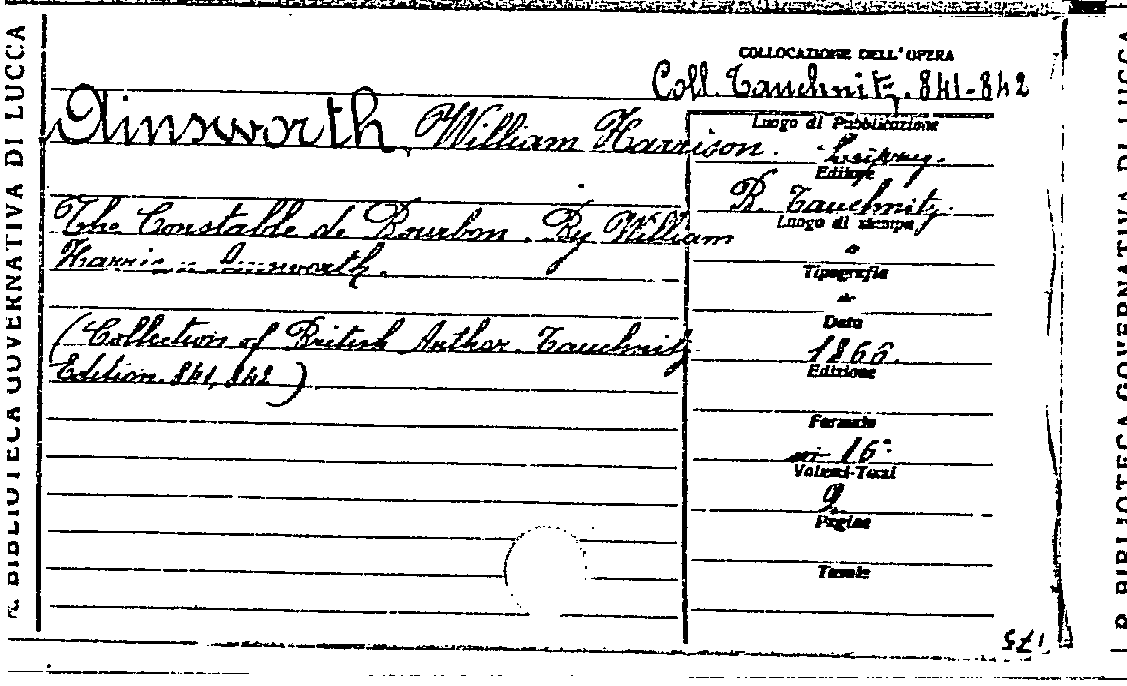 R. BIBLIOTECA GOVERNATIVA DI LUCCA
COLLOCAZIONE DELL'OPERA
Coll. Tauchnitz. 841-842
Ainsworth, William Harrison.
The Constable de Bourbon. By William
Harrison Ainsworth.
(Collection of British Author. Tauchnitz
Edition. 841, 842)
Luogo di Pubblicazione
Leipzig.
Editore
B. Tauchnitz.
Luogo di stampa
e
Tipografia
Data
1866.
Edizione
Formato
in 16º
Volumi-Tomi
2
Pagine
Tavole
175
R. BIBLIOTECA GOVERNATIVA DI LUCCA